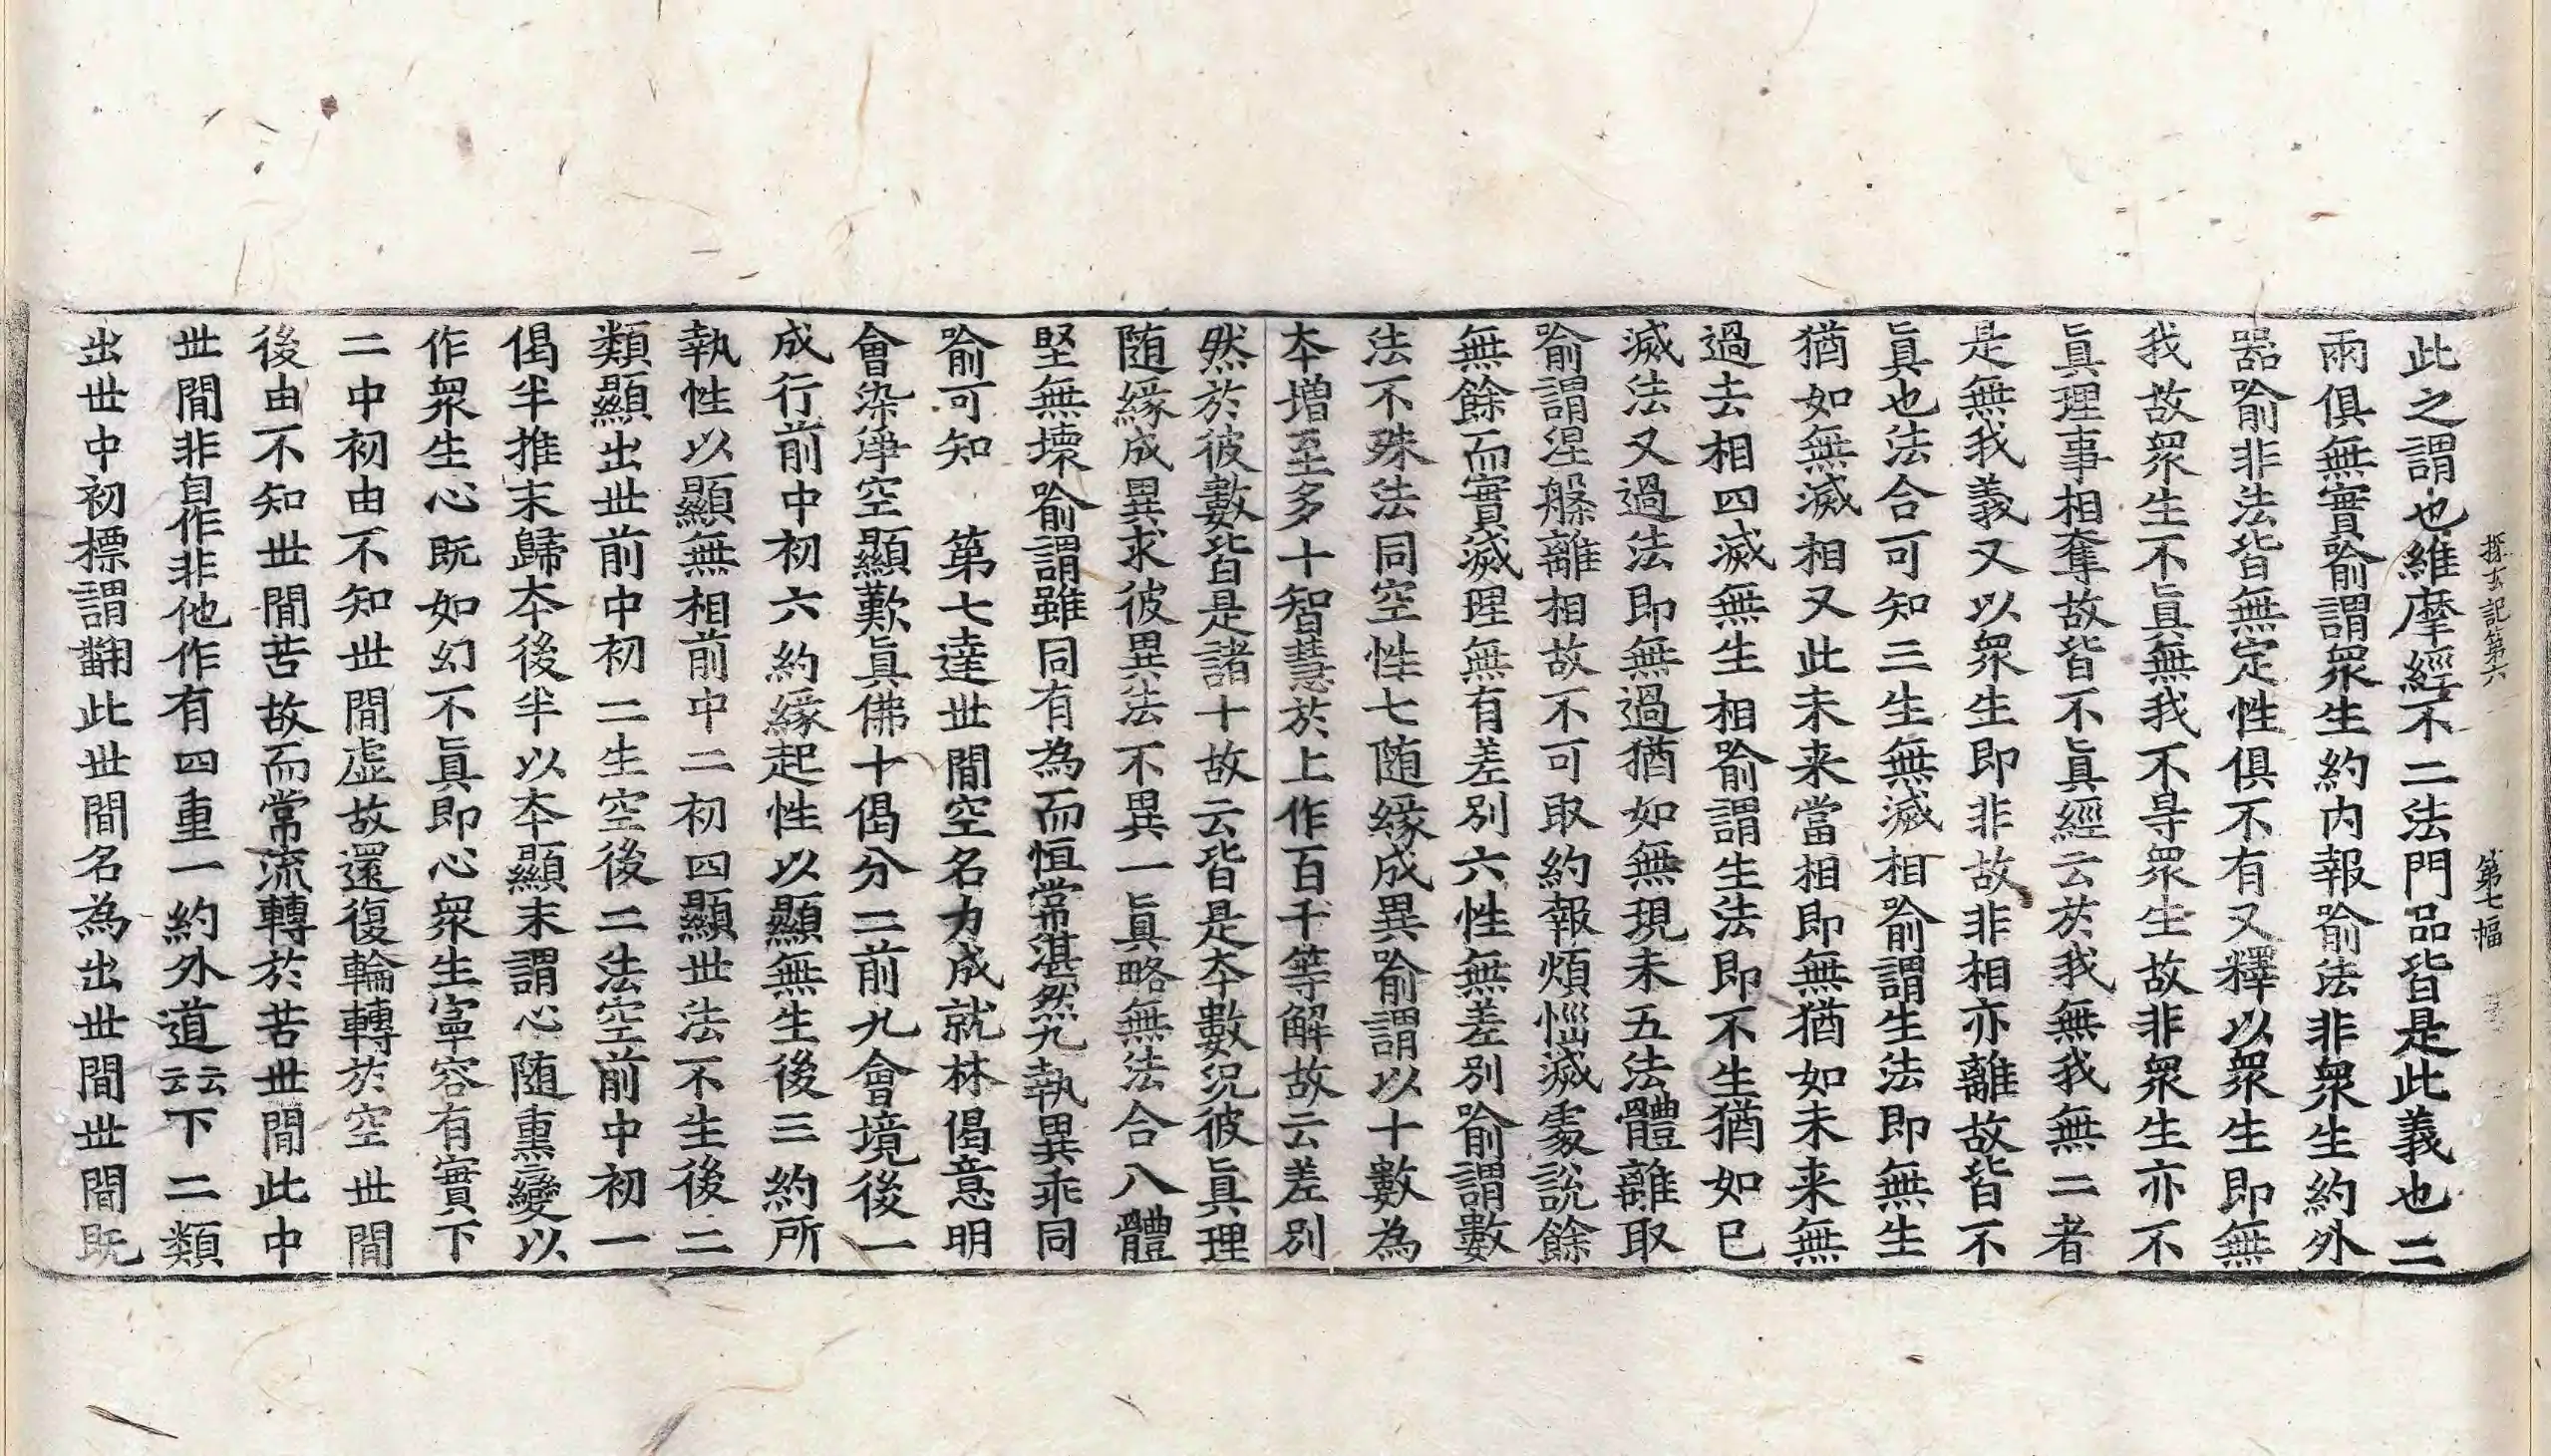 探玄記第六　第七幅
此之謂也維摩經不二法門品皆是此義也二
兩俱無實喻謂衆生約内報喻法非衆生約外
器喻非法皆無定性俱不有又釋以衆生即無
我故衆生不眞無我不㝵衆生故非衆生亦不
眞理事相奪故皆不眞經云於我無我無二者
是無我義又以衆生即非故非相亦離故皆不
眞也法合可知三生無滅相喻謂生法即無生
猶如無滅相又此未来當相即無猶如未来無
過去相四滅無生相喻謂生法即不生猶如已
滅法又過法即無過猶如無現未五法體離取
喻謂涅槃離相故不可取約報煩惱滅處說餘
無餘而實滅理無有差别六性無差别喻謂數
法不殊法同空性七随緣成異喻謂以十數為
本增至多十智慧於上作百千等解故云差别
然於彼數皆是諸十故云皆是本數況彼眞理
随緣成異求彼異法不異一眞略無法合八體
堅無壞喻謂雖同有為而恒常湛然九執異乖同
喻可知　第七達世間空名力成就林偈意明
會染淨空顯歎眞佛十偈分二前九會境後一
成行前中初六約緣起性以顯無生後三約所
執性以顯無相前中二初四顯世法不生後二
類顯出世前中初二生空後二法空前中初一
偈半推末歸本後半以本顯末謂心随熏變以
作衆生心既如幻不眞即心衆生寧容有實下
二中初由不知世間虛故還復輪轉於空世間
後由不知世間苦故而常流轉於苦世間此中
世間非自作非他作有四重一約外道云云下二類
出世中初標謂翻此世間名為出世間世間既